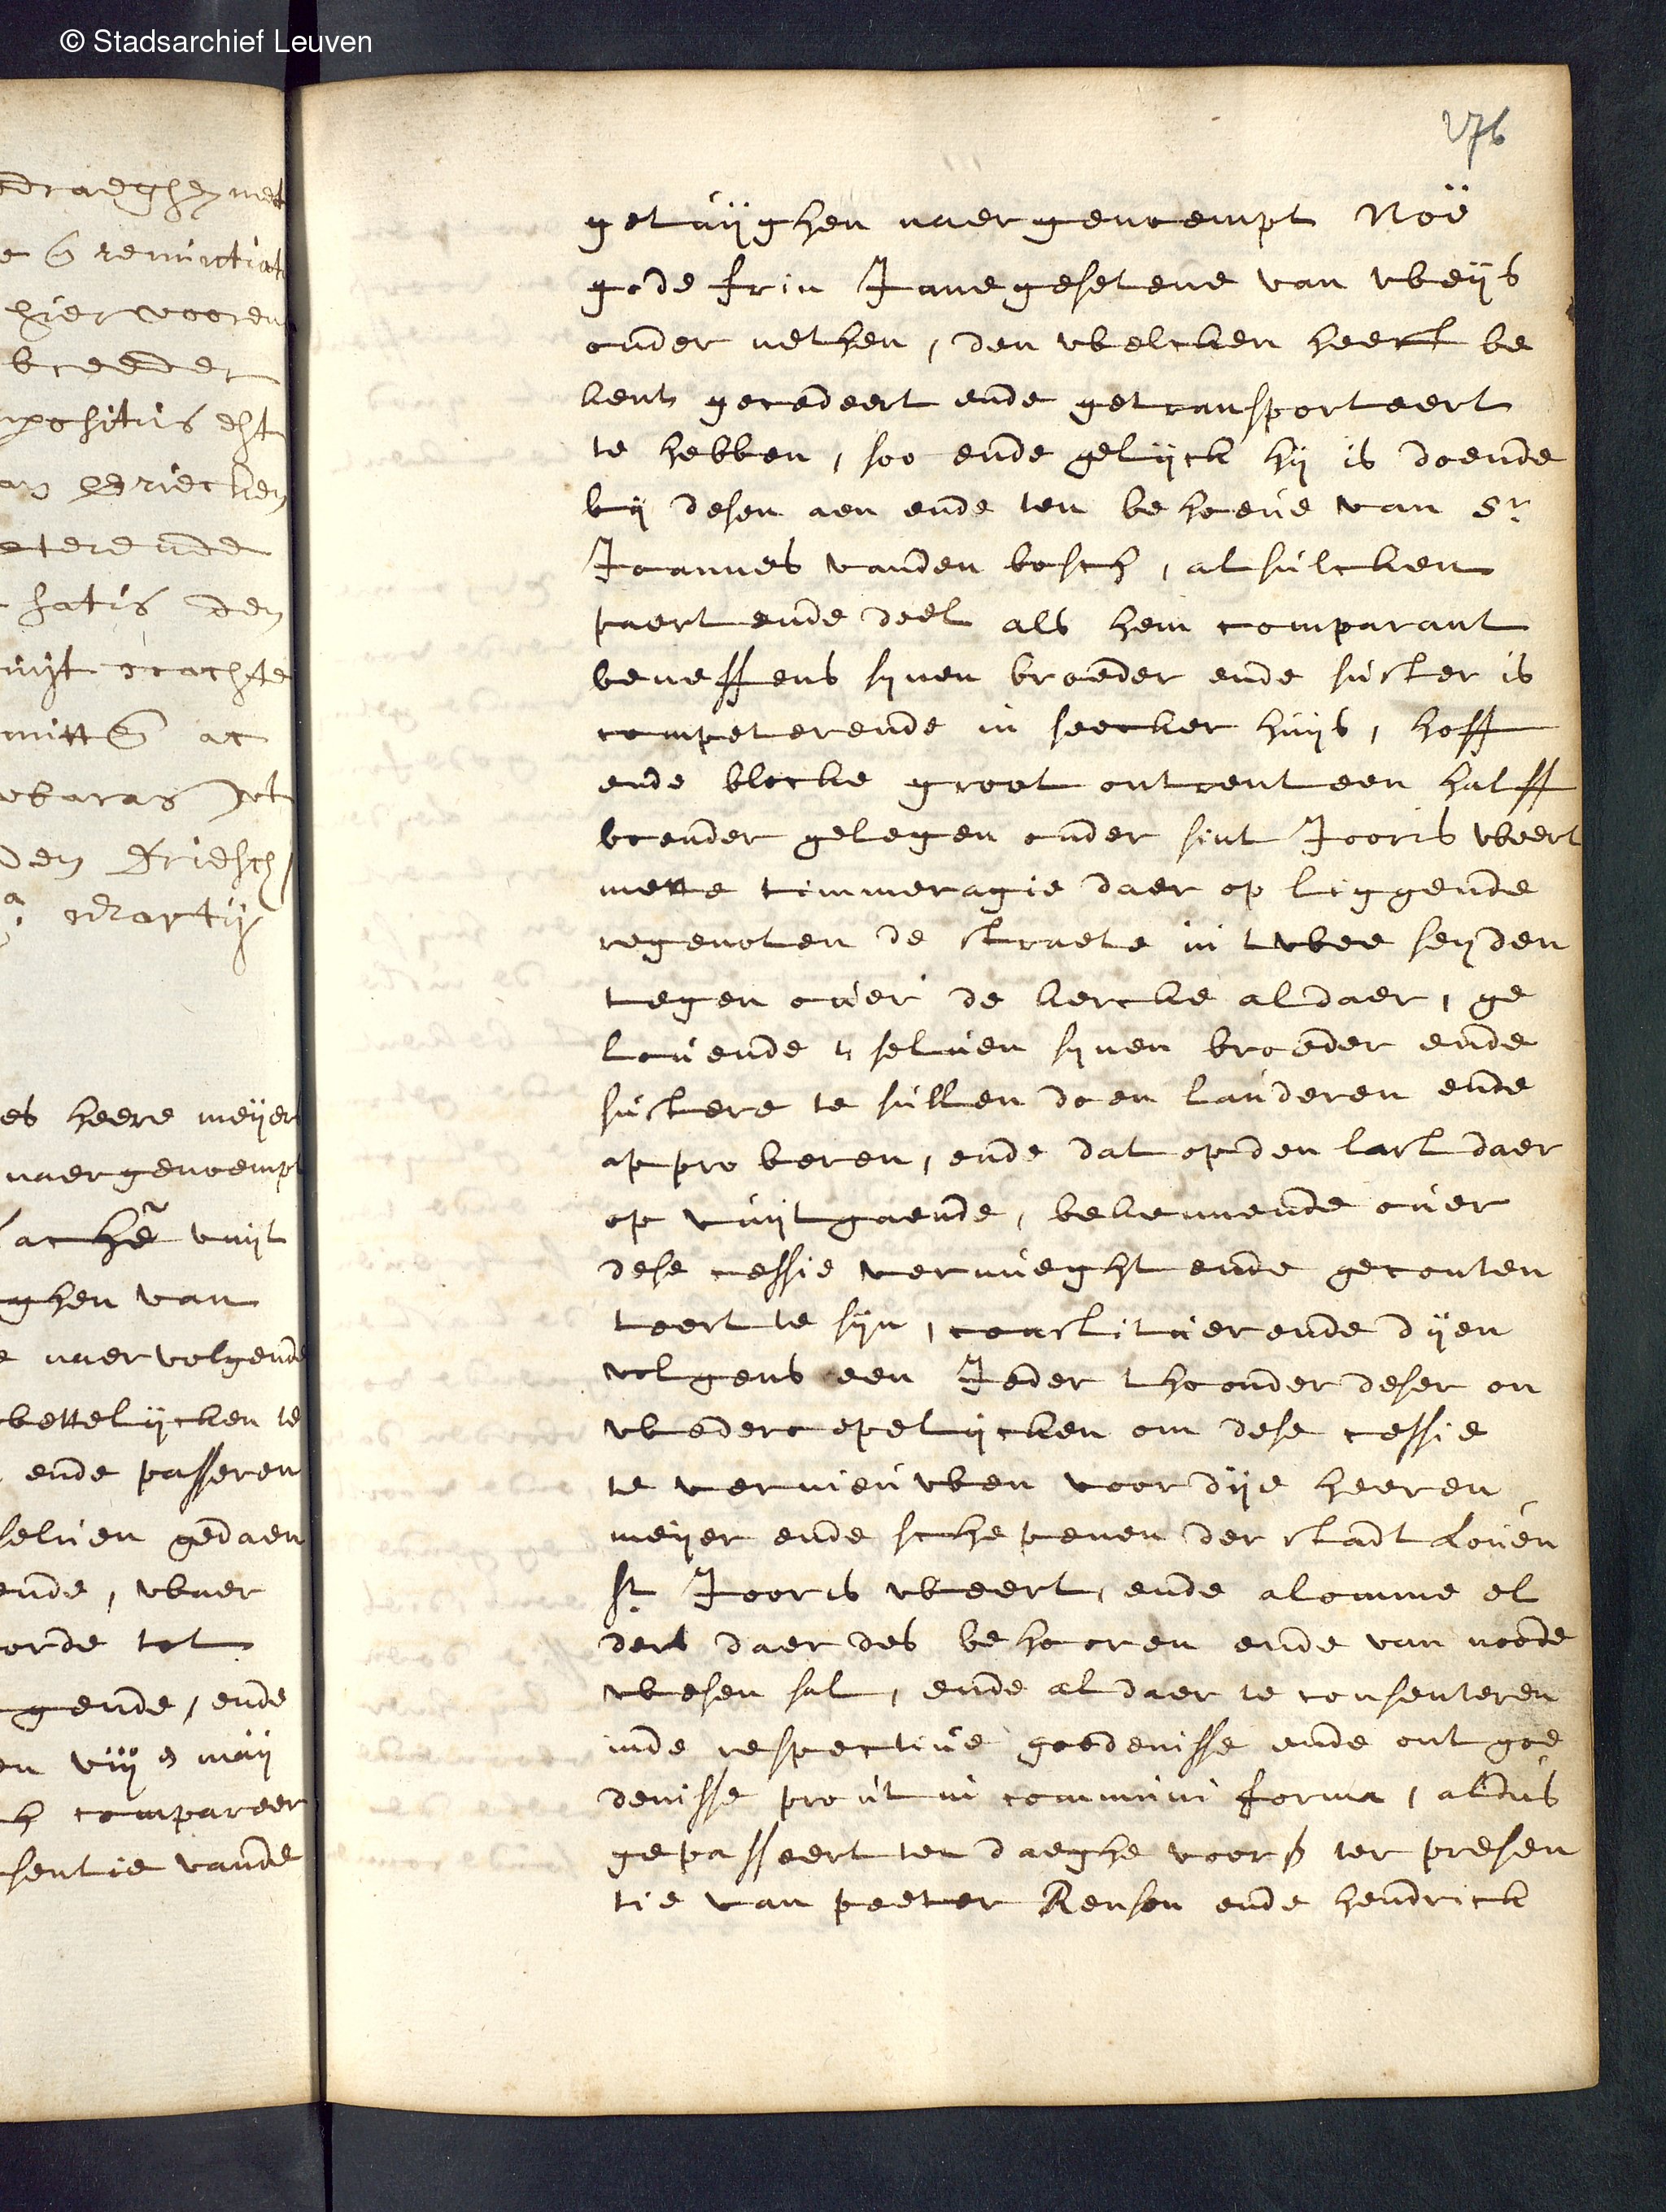 © Stadsarchief Leuven
276
getuijghen naergenoempt Noë
gode frin Janegesetene van wbeijs
onder nethen, den welcken heeft be
kent gecedeert ende getransporteert
te hebben, soo ende gelijck hij is doende
bij desen aen ende ten behoeve van Sr
Joannes vanden bosch, alsulcken
paert ende deel als hem comparant
beneffens synen broeder ende suster is
competerende in seecker huijs, hoff
ende blocke groot ontrent een halff
boender gelegen onder sint Jooris weert
mette timmeragie daer op liggende
regenoten de straete in twee seyden
tegen over de kercke aldaer, ge
lovende selven synen broeder ende
sustere te sullen doen lauderen ende
approberen, ende dat opden last daer
op vuijtgaende, bekennende over
dese cessie vernueght ende geconten
teert te sijn, constituerende dijen
volgens een Jeder thoonder deser on
wederroepelijcken om dese cessie
te vernieuwen voor dije heeren
meijer ende schepenen der stadt Loven
st Jooris weert, ende alomme el
ders daer des behooren ende van noode
wesen sal, ende aldaer te consenteren
inde respective goedenisse ende ontgoe
denisse prout in communi forma, aldus
gepasseert ten daeghe voors ter presen
tie van peeter Renson ende hendrick
draeghen met
renunctiat
hier vooren
breeder
positus est
Briecken
satis den
den Driesch
Martij
es heere meijer
naergenoempt
vuijt
ghen van
naervolgende
wettelijcken te
ende passeren
selven gedaen
ende, waer
orde tot
gende, ende
maij
compareer
sentie vande